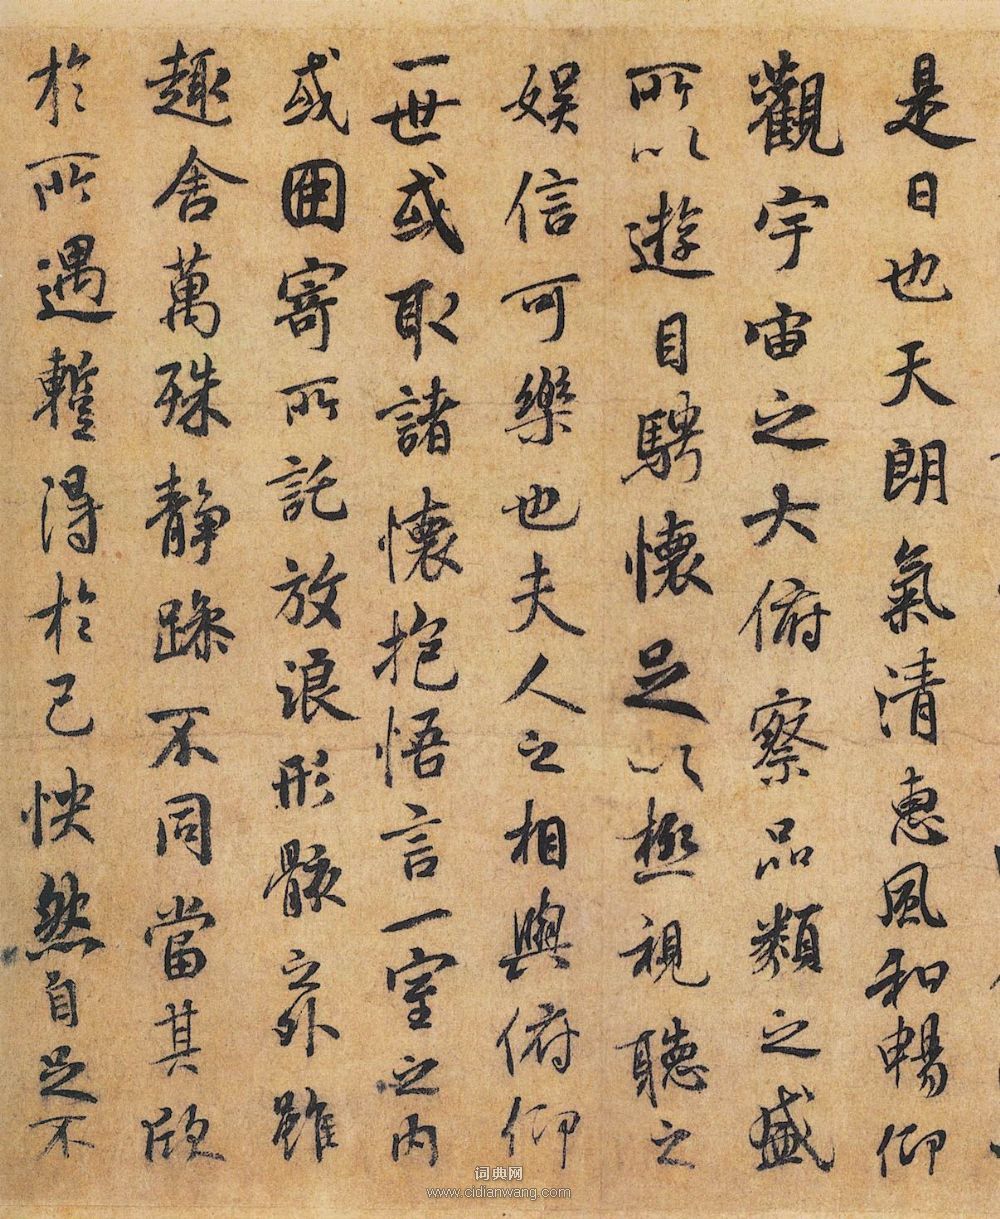 是日也天朗氣清惠風和暢仰
觀宇宙之大俯察品類之盛
所以遊目騁懷足以極視聽之
娛信可樂也夫人之相與俯仰
一世或取諸懷抱悟言一室之內
或因寄所託放浪形骸之外雖
趣舍萬殊靜躁不同當其欣
於所遇暫得於己怏然自足不
词典网
www.cidianwang.com